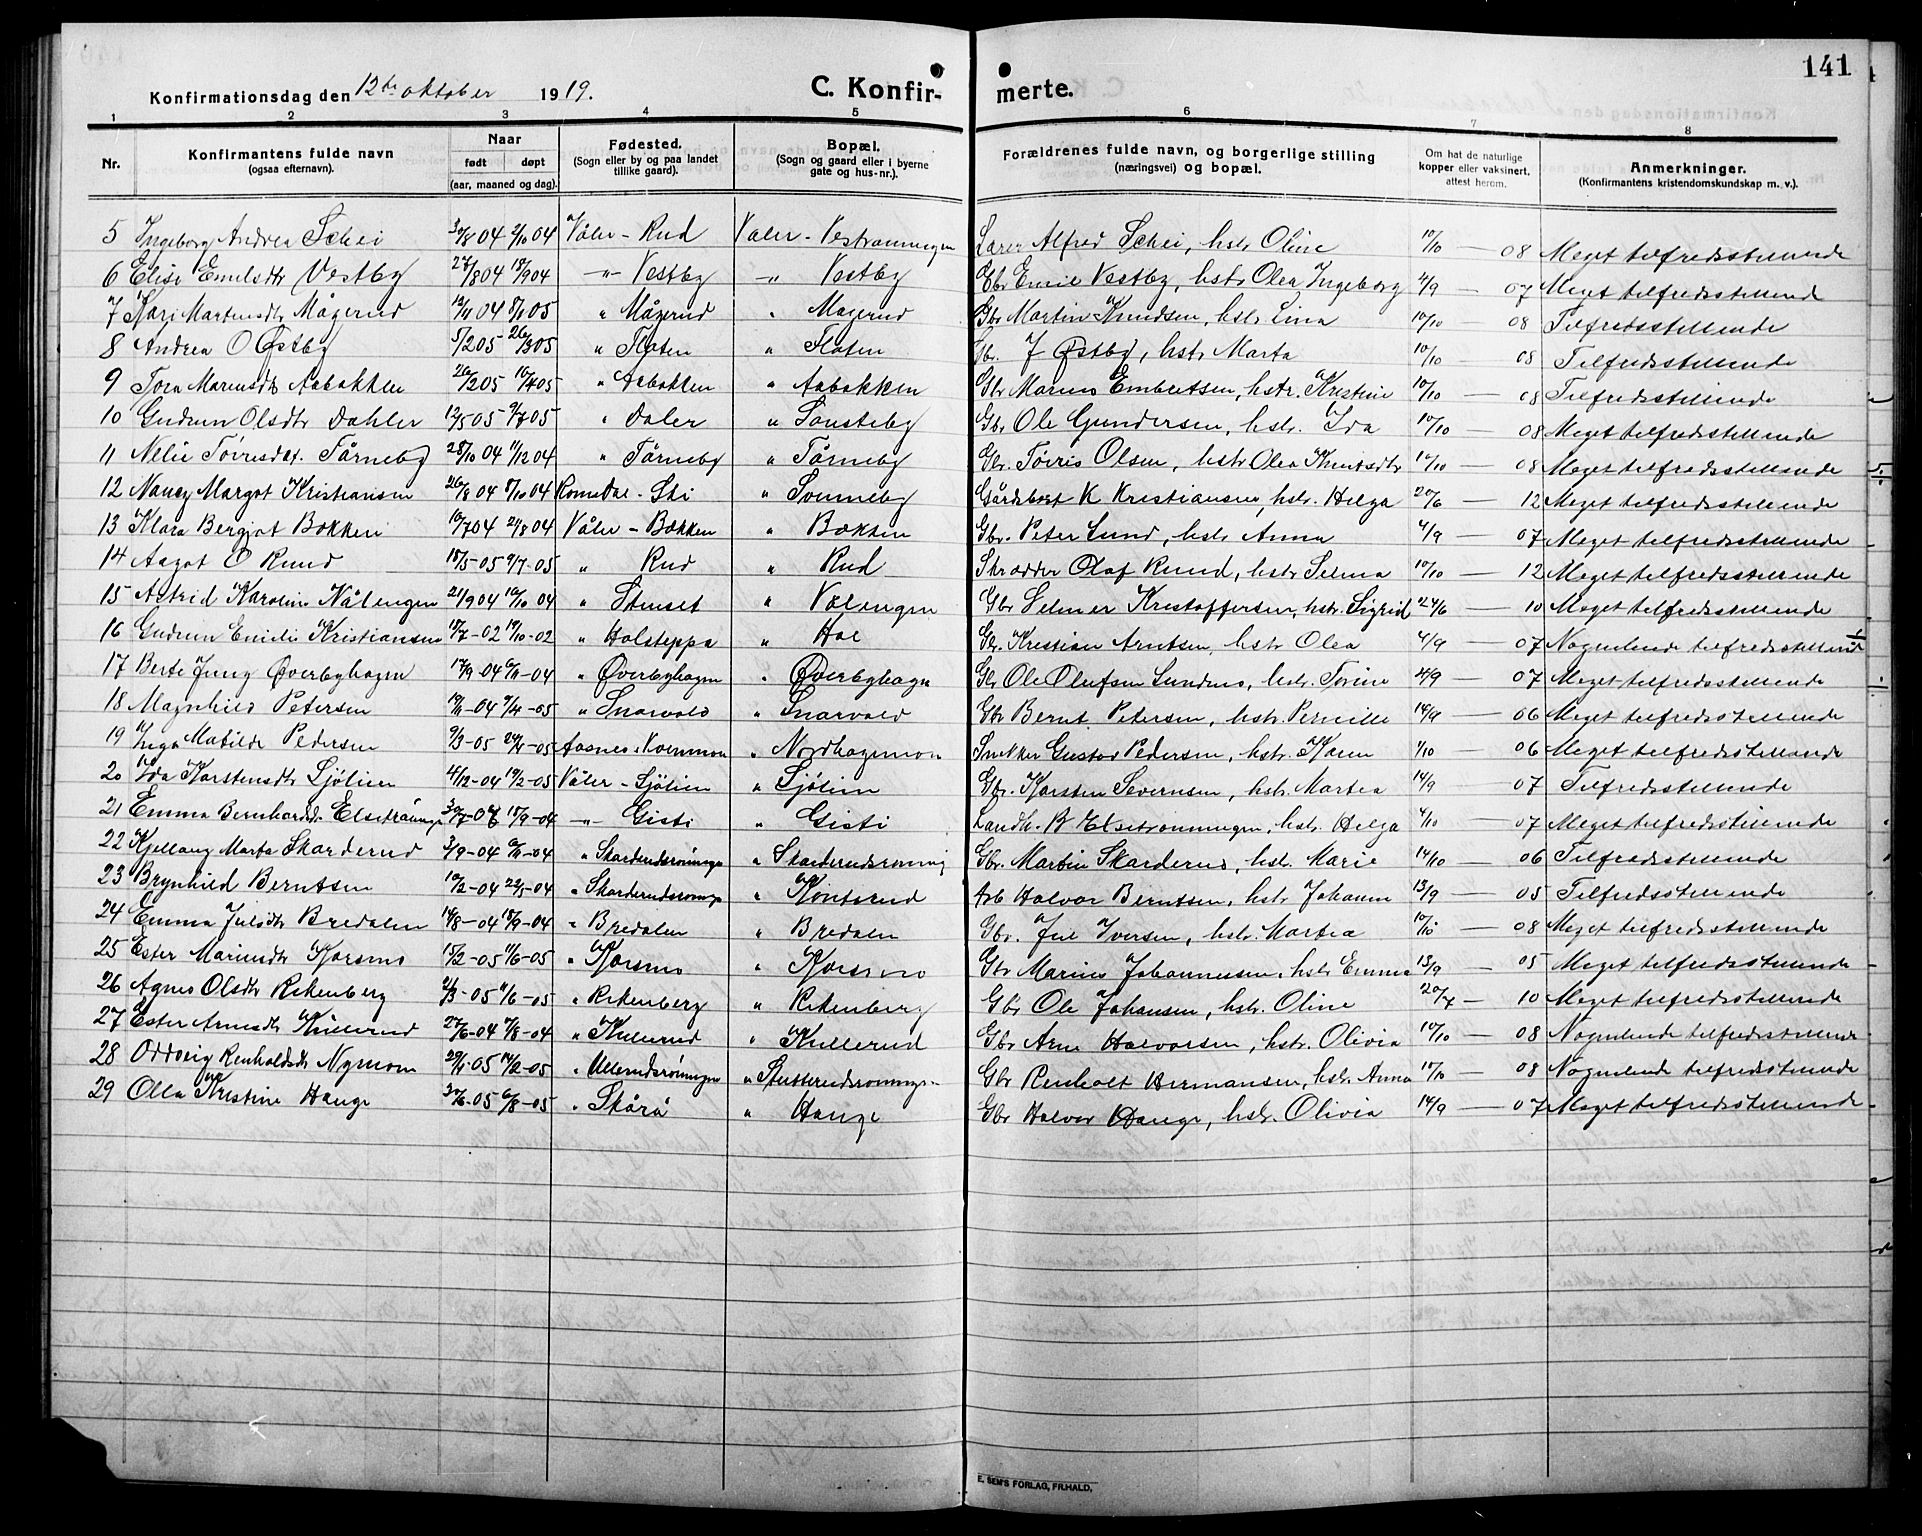 141
Konfirmationsdag den 12te oktober 1919. C. Konfir- merte.
1 2 3 4 5 6 7 8
Nr. Konfirmantens fulde navn (ogsaa efternavn). Naar født døpt (aar, maaned og dag). Fødested. (Sogn eller by og paa landet tillike gaard). Bopæl. (Sogn og gaard eller i byerne gate og hus-nr.). Forældrenes fulde navn, og borgerlige stilling (næringsvei) og bopæl. Om hat de naturlige kopper eller vaksinert, attest herom. Anmerkninger. (Konfirmantens kristendomskundskap m. v.).
5 Ingeborg Andrea Schei 30/8 04 2/10 04 Våler - Rud Våler - Vestrønningen Lærer Alfred Schei, hstr Oline 10/10 — 08 Meget tilfredsstillende
6 Elise Emilsdtr Vestby 27/8 04 18/9 04 -"- Vestby -"- Vestby Gbr Emil Vestby, hstr Olea Ingeborg 4/9 — 07 Meget tilfredsstillende
7 Kari Martinsdtr Mågerud 04 8/1 05 " Mågerud " Mågerud Gbr Martin Knudsen, hstr Lina 10/10 — 08 Tilfredsstillende
8 Andrea O Østby 5/2 05 26/3 05 " Floten " Floten Gb. J Østby, hstr Marta 10/10 — 08 Tilfredsstillende
9 Tora Mariusdtr Aabakken 26/2 05 16/4 05 " Aabakken " Aabakken Gbr Marius Embretsen, hstr. Kristine 10/10 — 08 Tilfredsstillende
10 Gudrun Olsdtr Dahler 12/5 05 9/7 05 " Daler " Sønsteby Gbr Ole Gundersen, hstr. Ida 10/10 — 08 Meget tilfredsstillende
11 Nelie Tørresdat. Tårneby 28/10 04 11/12 04 " Tårneby " Tårneby Gbr. Tøris Olsen, hstr Olea Knudsdtr 10/10 — 08 Meget tilfredsstillende
12 Nancy Margot Kristiansen 26/8 04 8/10 04 Romedal - Ski " Sønneby Gårdsbest K Kristiansen, hstr. Helga 20/6 12 Meget tilfredsstillende
13 Klara Bergjot Bakken 10/7 04 21/8 04 Våler - Bakken " Bakken Gbr. Peter Lund, hstr Anna 4/9 — 07 Meget tilfredsstillende
14 Aagot O Ruud 18/5-05 9/7-05 " Rud " Rud Skrædder Olaf Ruud, hstr Selma 10/10 — 12 Meget tilfredsstillende
15 Astrid Karoline Nålengen 21/9 04 16/10 04 " Stenset " Nålengen Gbr Selmer Kristoffersen, hstr. Sigrid 24/6 — 10 Meget tilfredsstillende
16 Gudrun Emilie Kristiansen 18/7-02 19/10-02 " Holsteppa " Hol Gbr. Kristian Arntsen, hstr Olea 4/9 — 07 Nogenlunde tilfredsstillende
17 Berte Jenny Øverbyhagen 17/9-04 6/11-04 " Øverbyhagen " Øverbyhagen Gbr Ole Olufsen Sundmo, hstr. Torine 4/9 — 07 Meget tilfredsstillende
18 Magnhild Petersen " Snarvold " Snarvold Gbr Bernt Petersen, hstr. Pernille 14/9 — 06 Meget tilfredsstillende
19 Inga Matilde Pedersen 9/3-05 Aasnes - Kvernmon " Nordhagemon Snekker Gustav Pedersen, hstr. Karen 1/10 — 06 Meget tilfredsstillende
20 Ida Karstensdtr Sjølien 4/12-04 19/2-05 Våler - Sjølien " Sjølien Gbr. Karsten Severnsen, hstr Martea 14/9 — 07 Tilfredsstillende
21 Emma Bernhardsd. Elsetrønnge 30/7-04 18/9-04 -"- Gisti " Gisti Landh. B Elsetrønningen, hstr. Helga 4/10 — 07 Meget tilfredsstillende
22 Kjellaug Marta Skarderud 3/9-04 6/11-04 " Skarderudrønnge " Skarderudrønning Gbr. Martin Skarderud, hstr. Marie 14/10 — 06 Tilfredsstillende
23 Brynhild Berntsen 10/2-04 22/5-04 " Skarderudrønnge " Konterud Arb Halvor Berntsen, hstr Johanne 13/9 — 05 Tilfredsstillende
24 Emma Julsdtr Bredalen 14/8-04 18/9-04 " Bredalen " Bredalen Gbr. Jul Iversen, hstr. Martea 10/10 — 08 Meget tilfredsstillende
25 Ester Mariusdtr Korsmo 15/2-05 11/6-05 " Korsmo " Korsmo Gbr Marius Johannessen, hstr Emma 13/9 — 05 Meget tilfredsstillende
26 Agnes Olsdtr Rekenberg 21/3-05 11/6-05 " Rekenberg " Rekenberg Gbr Ole Johansen, hstr. Oline 20/7 — 10 Meget tilfredsstillende
27 Ester Arnesdtr Kullerud 27/6-04 7/8-04 " Kullerud " Kullerud Gbr Arne Halvorsen, hstr. Olivia 10/10 — 08 Nogenlunde tilfredsstillende
28 Oddveig Renholdsdtr Nymoen 29/1-05 14/2-05 " Ullerudsrønningen " Stutterudsrønningen Gbr Renholt Hermansen, hstr Anna 10/10 — 08 Nogenlunde tilfredsstillende
29 Olla Kristine Hauge 30/6-05 6/8-05 " Skårå " Hauge Gbr Halvor Hauge, hstr. Olivia 14/9 — 07 Meget tilfredsstillende
E. SEM'S FORLAG, FR.HALD.